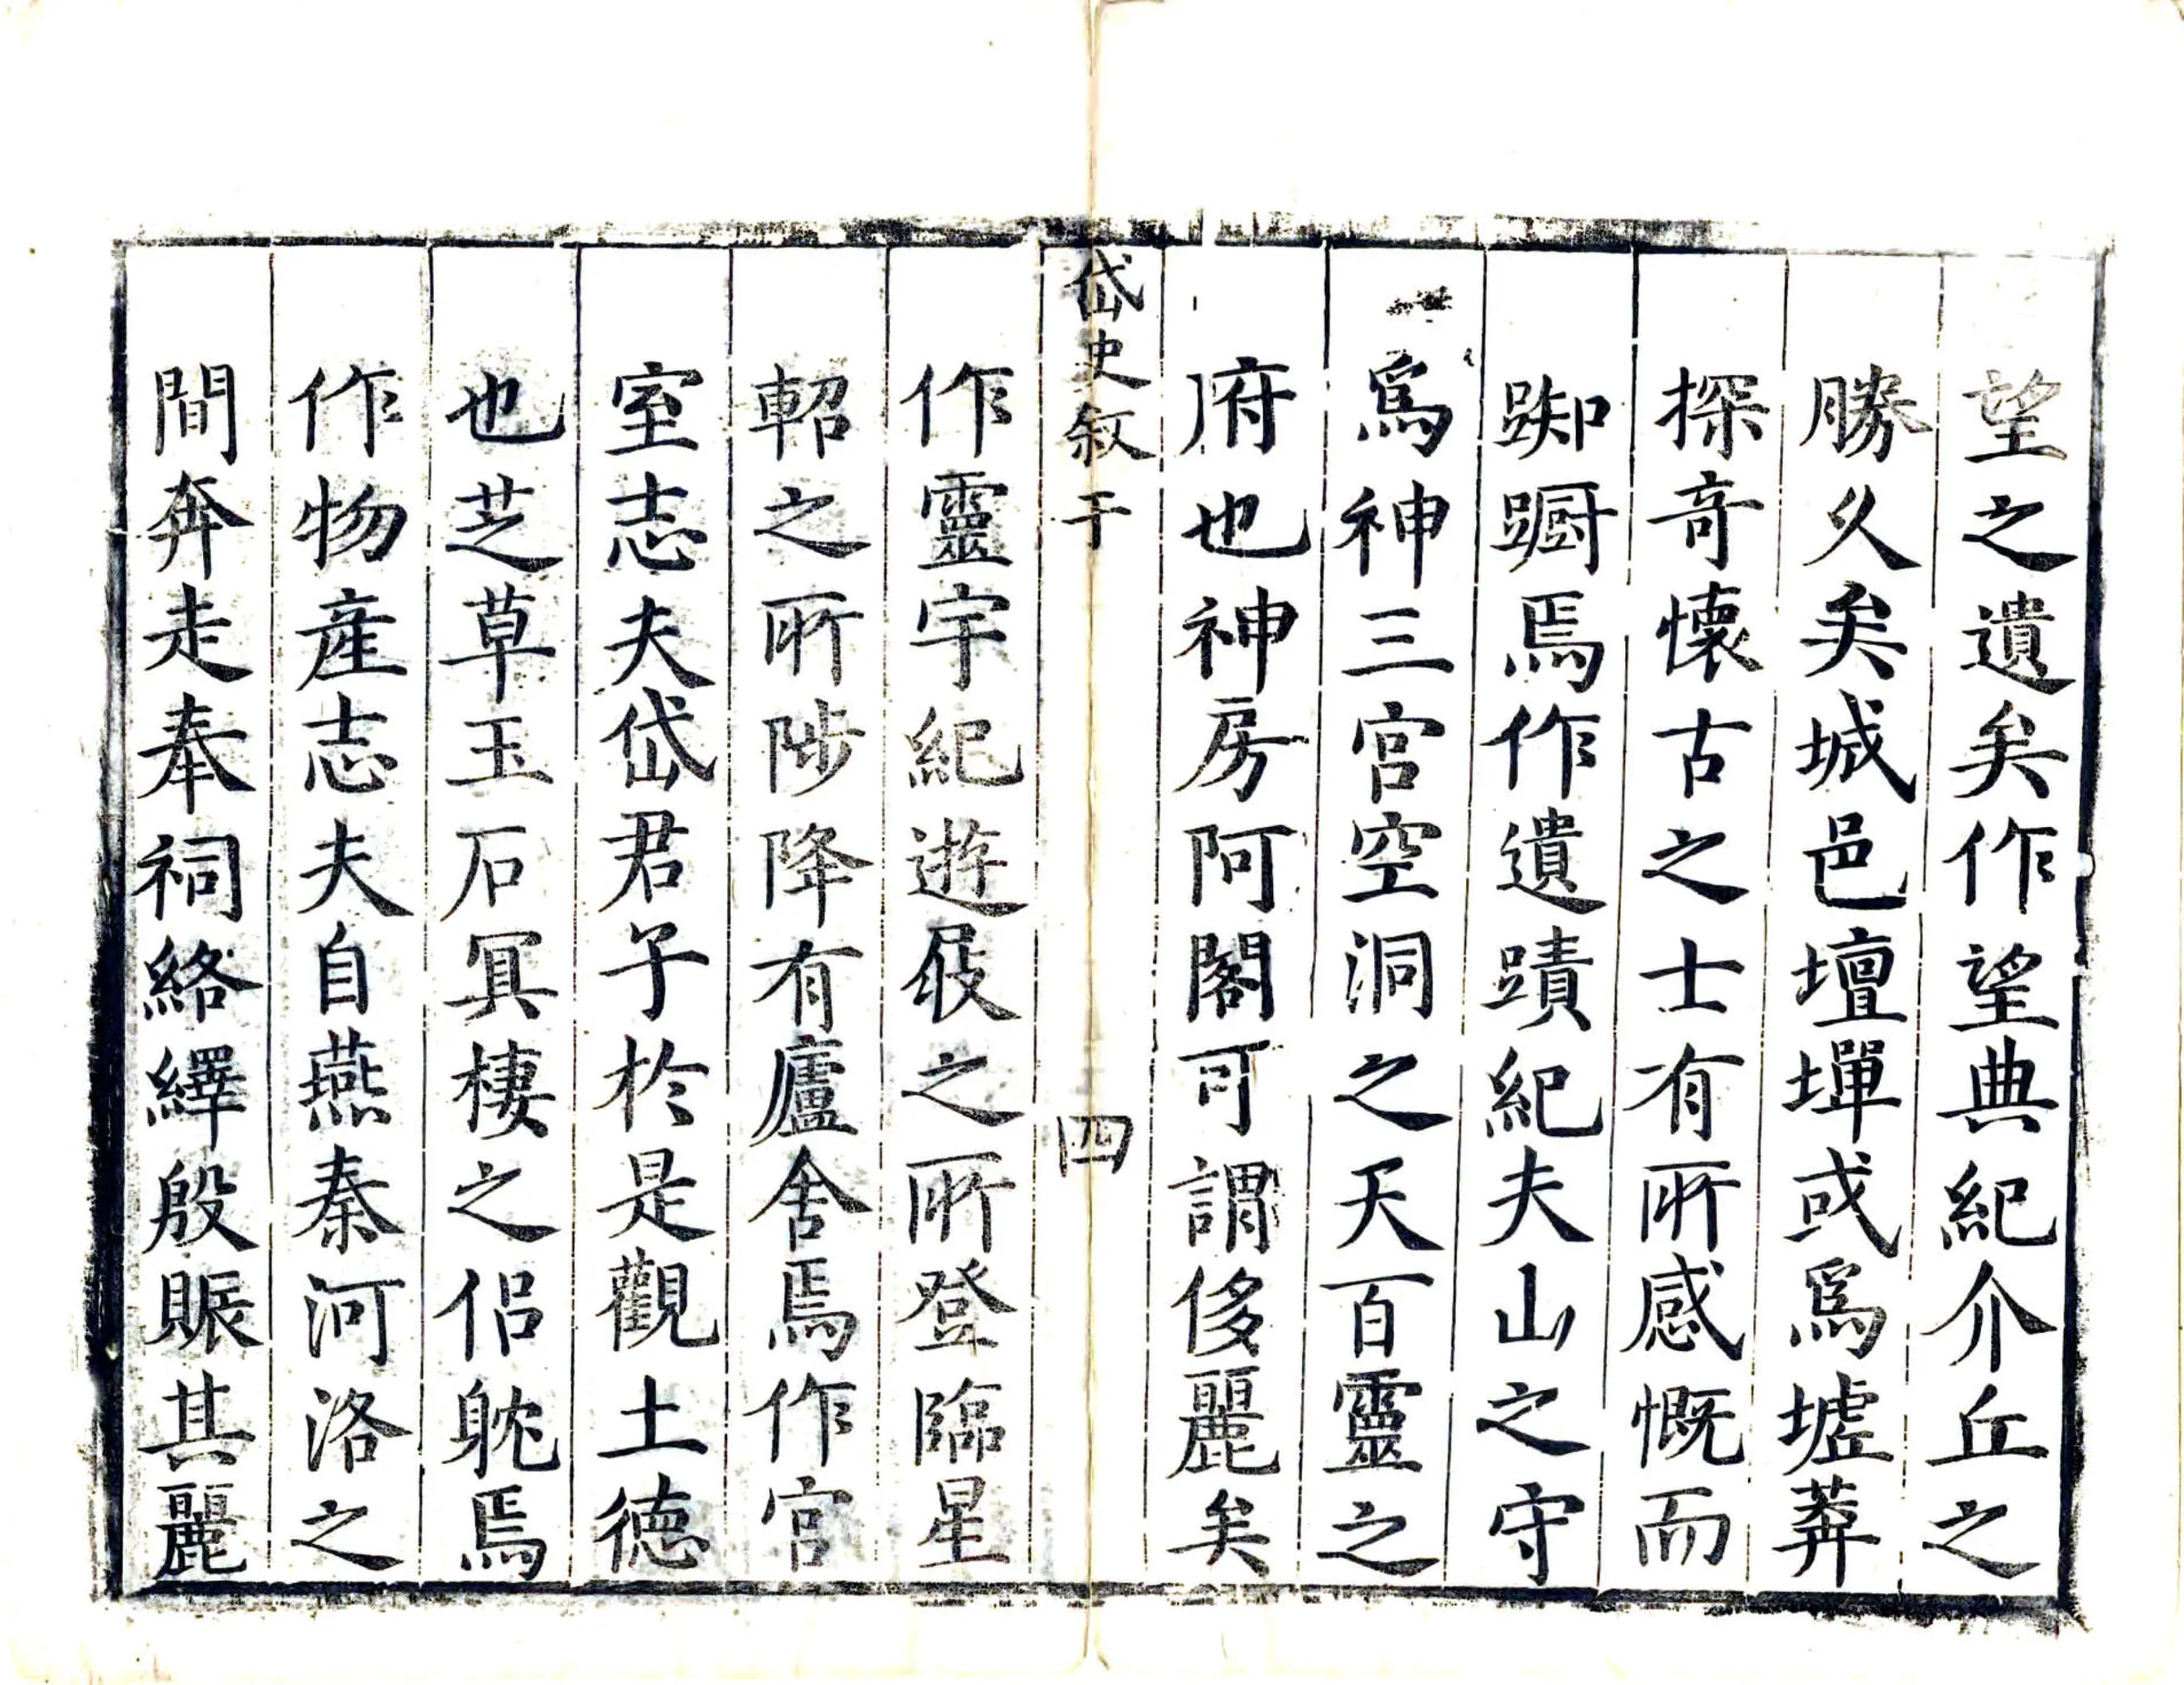 望之遺矣作望典紀介丘之
勝久矣城邑壇墠或爲墟莽
探竒懷古之士有所感慨而
踟蹰焉作遺蹟紀夫山之守
爲神三宮空洞之天百靈之
府也神房阿閣可謂侈麗矣
岱史叙 干 四
作靈宇紀遊屐之所登臨星
軺之所陟降有廬舍焉作宮
室志夫岱君子於是觀土德
也芝草玉石冥棲之侣躭焉
作物産志夫自燕秦河洛之
間奔走奉祠絡繹殷賑其麗